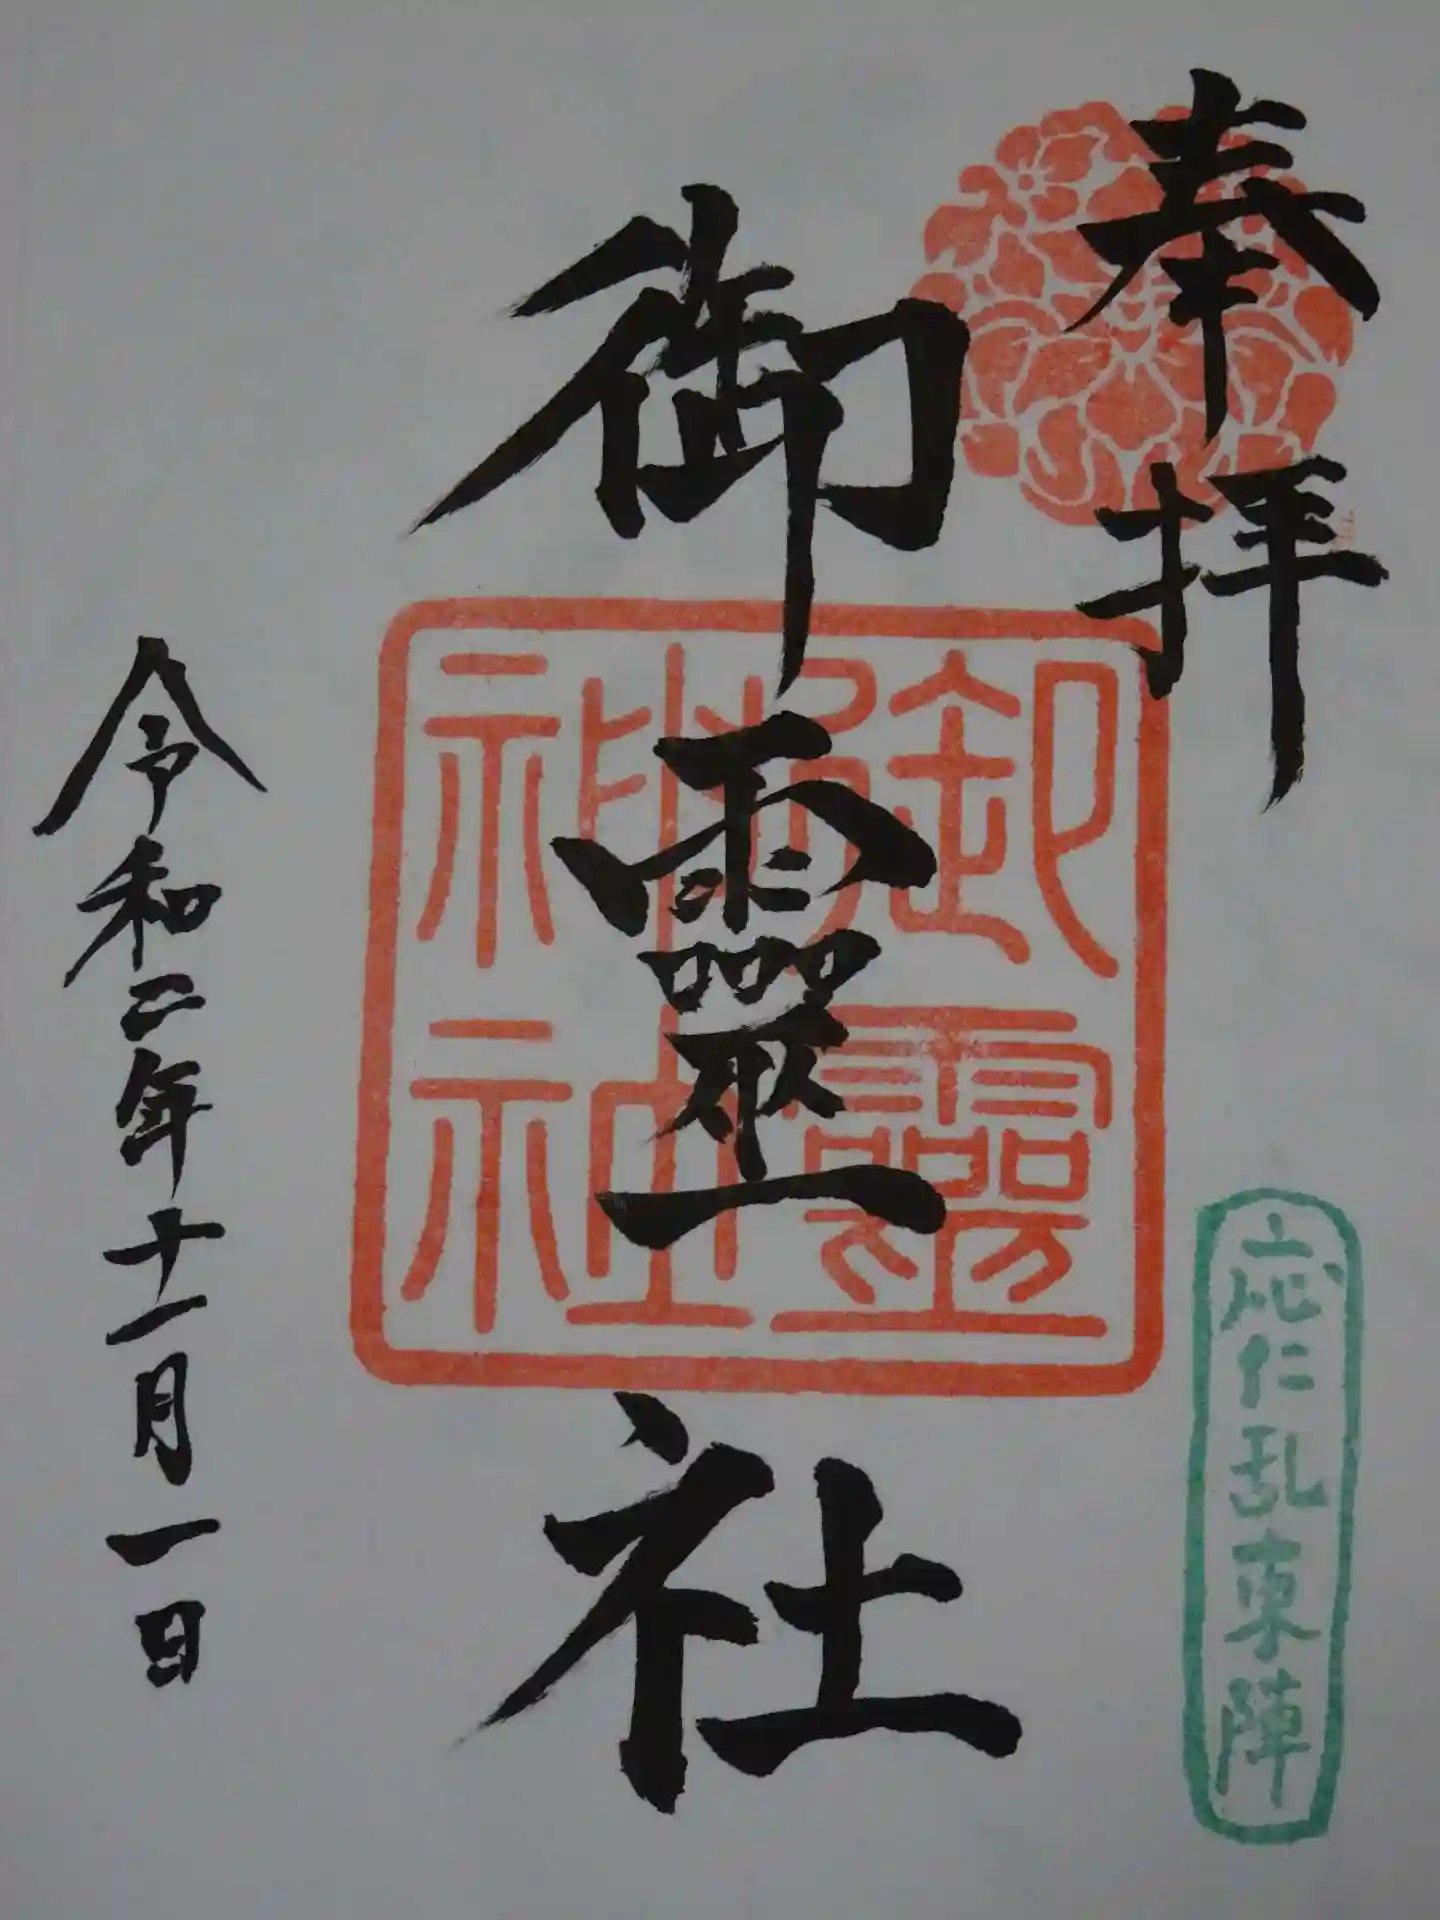 奉拝
応仁乱東陣
御靈社
御靈神社
令和二年十一月一日